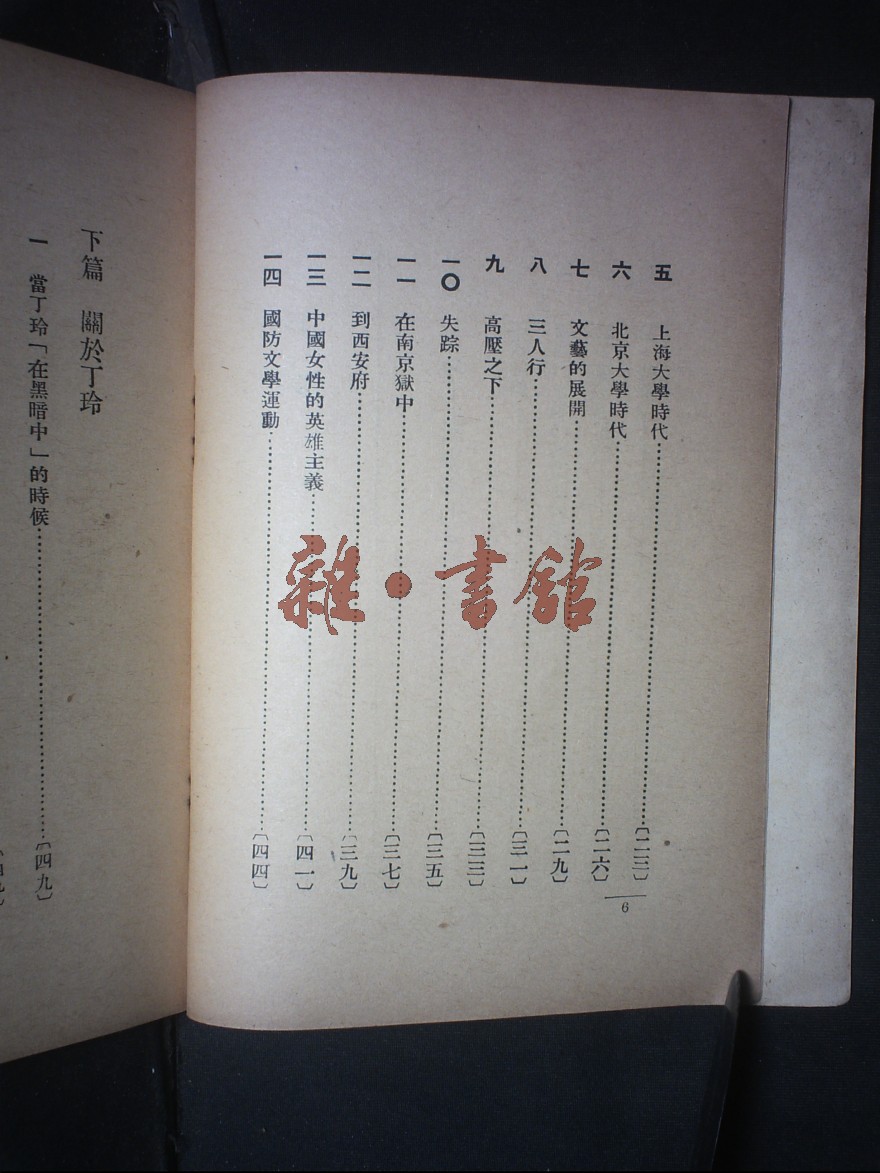 五 上海大學時代〔二三〕
六 北京大學時代〔二六〕
七 文藝的展開〔二九〕
八 三人行〔三一〕
九 高壓之下〔三三〕
一〇 失踪〔三五〕
一一 在南京獄中〔三七〕
一二 到西安府〔三九〕
一三 中國女性的英雄主義〔四一〕
一四 國防文學運動〔四四〕
6
下篇 關於丁玲
一 當丁玲「在黑暗中」的時候〔四九〕
雜·書館